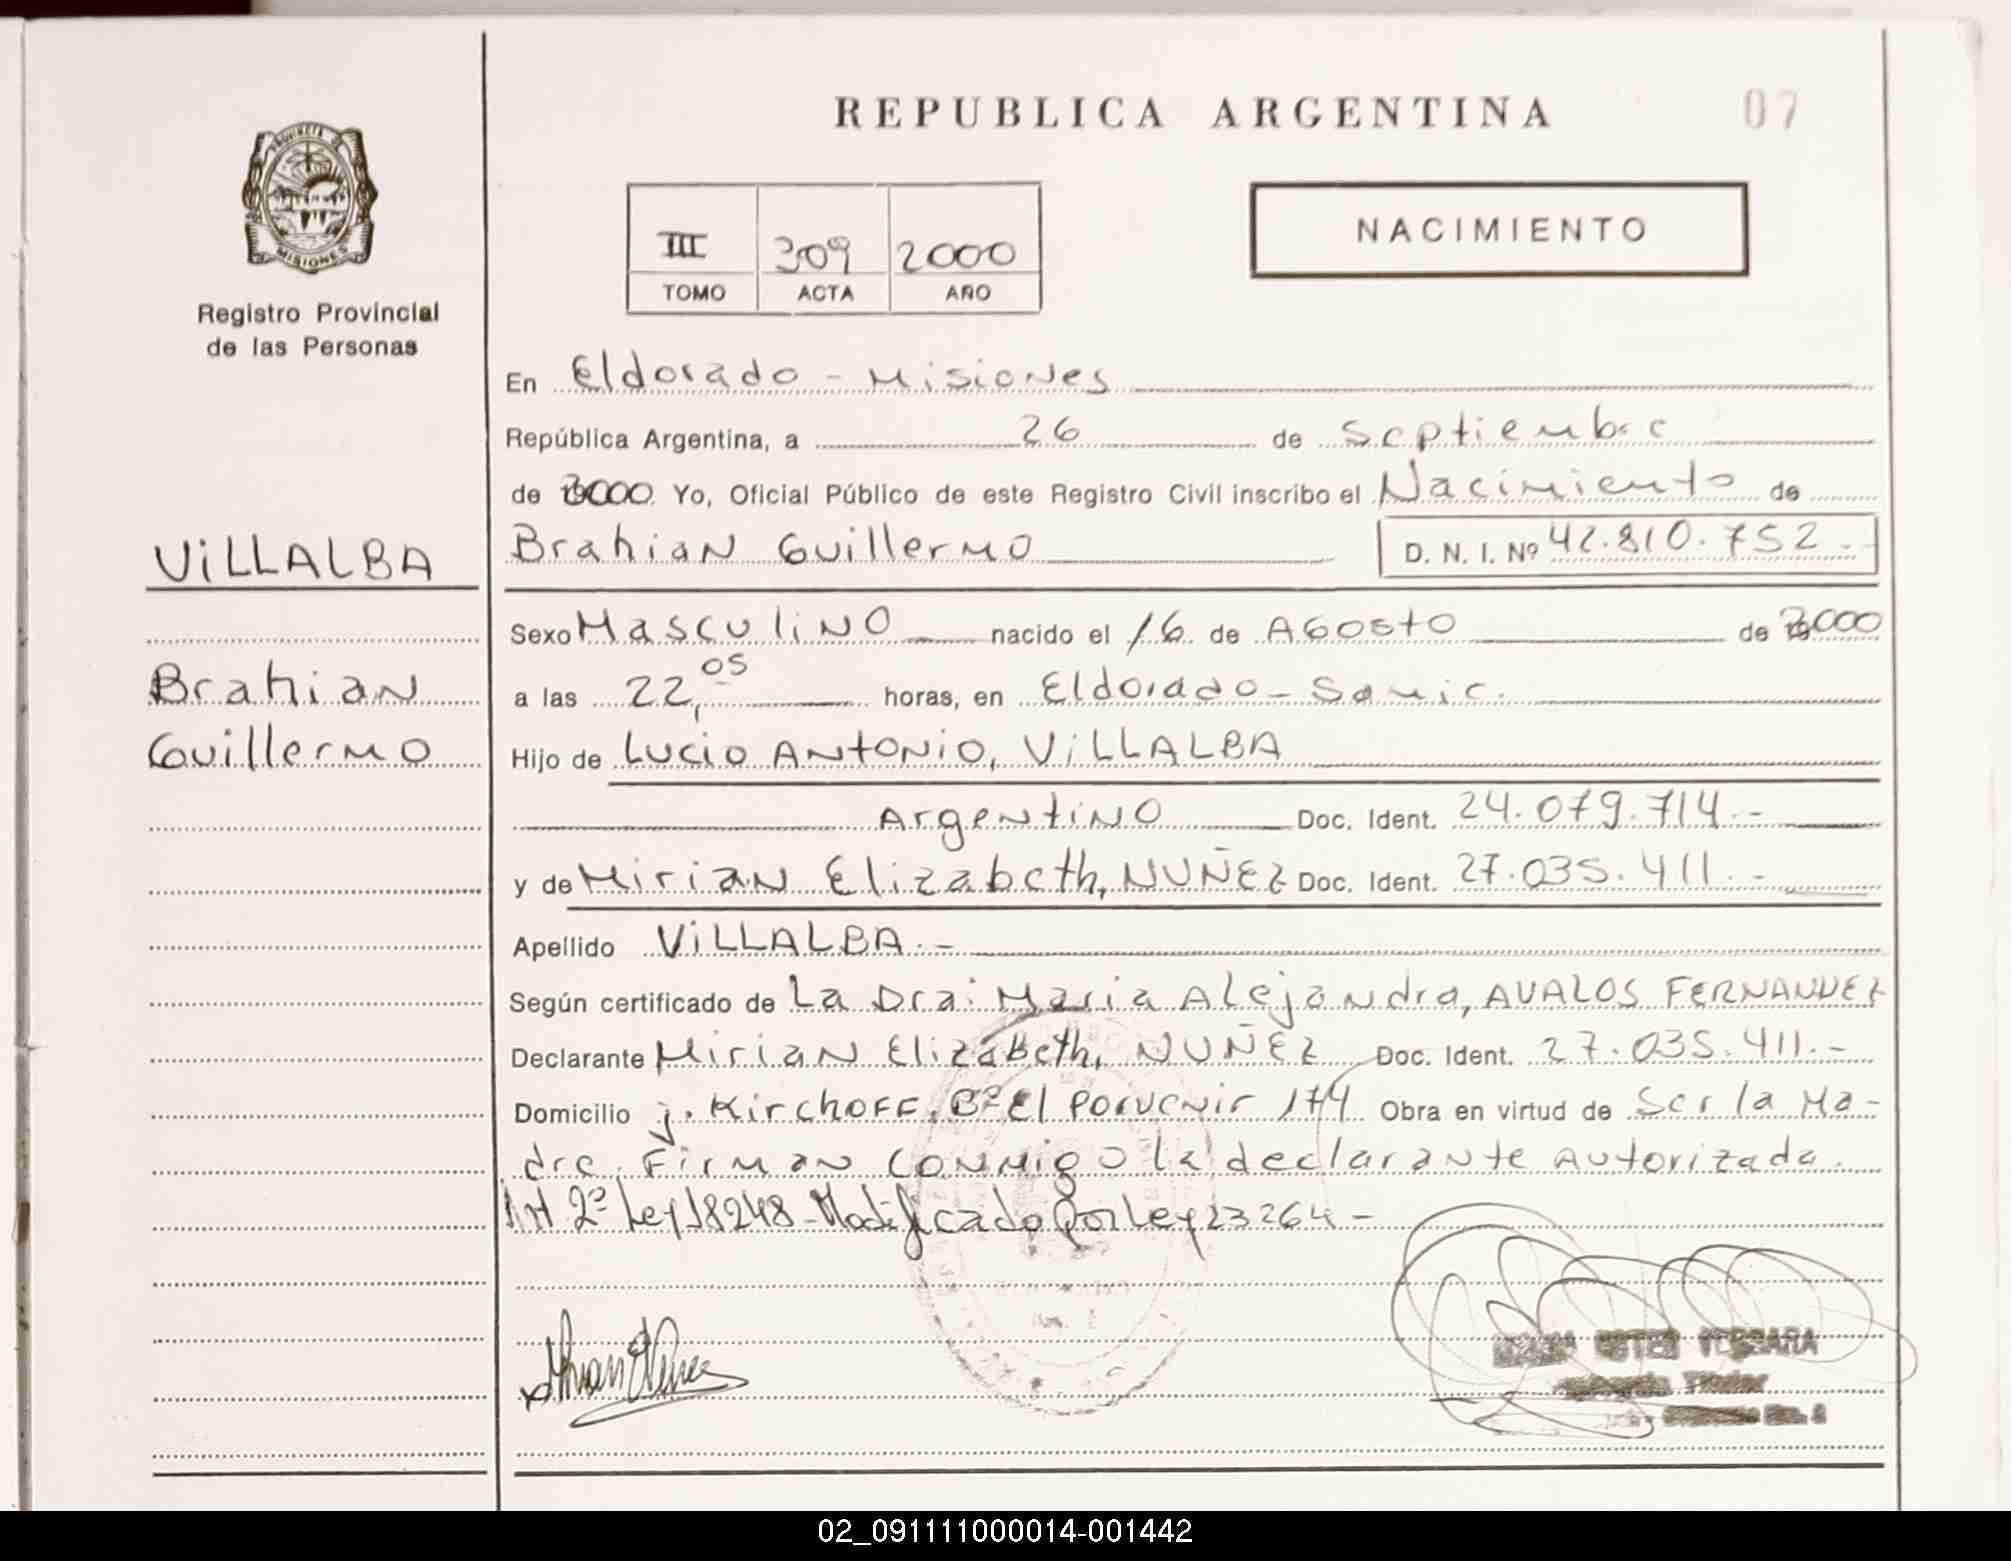 REPUBLICA ARGENTINA
07
PROVINCIA DE
MISIONES
Registro Provincial
de las Personas
III 309 2000
TOMO ACTA AÑO
NACIMIENTO
En Eldorado - Misiones
República Argentina, a 26 de Septiembre
de 2000 Yo, Oficial Público de este Registro Civil inscribo el Nacimiento de
VILLALBA
Brahian Guillermo D. N. I. Nº 42.810.752.-
Sexo Masculino nacido el 16 de Agosto de 2000
Brahian
a las 22,05 horas, en Eldorado - Samic.
Guillermo
Hijo de Lucio Antonio, VILLALBA
Argentino Doc. Ident. 24.079.714.-
y de Mirian Elizabeth, NUÑEZ Doc. Ident. 27.035.411.-
Apellido VILLALBA.-
Según certificado de La Dra: Maria Alejandra, AVALOS FERNANDEZ
Declarante Mirian Elizabeth, NUÑEZ Doc. Ident. 27.035.411.-
Domicilio J. Kirchoff, Bº El Porvenir 174 Obra en virtud de Ser la Ma-
dre. Firman conmigo la declarante autorizada.
Art 2º Ley 18248 - Modificado por Ley 23264 -
ESTER VERGARA
Titular
02_091111000014-001442